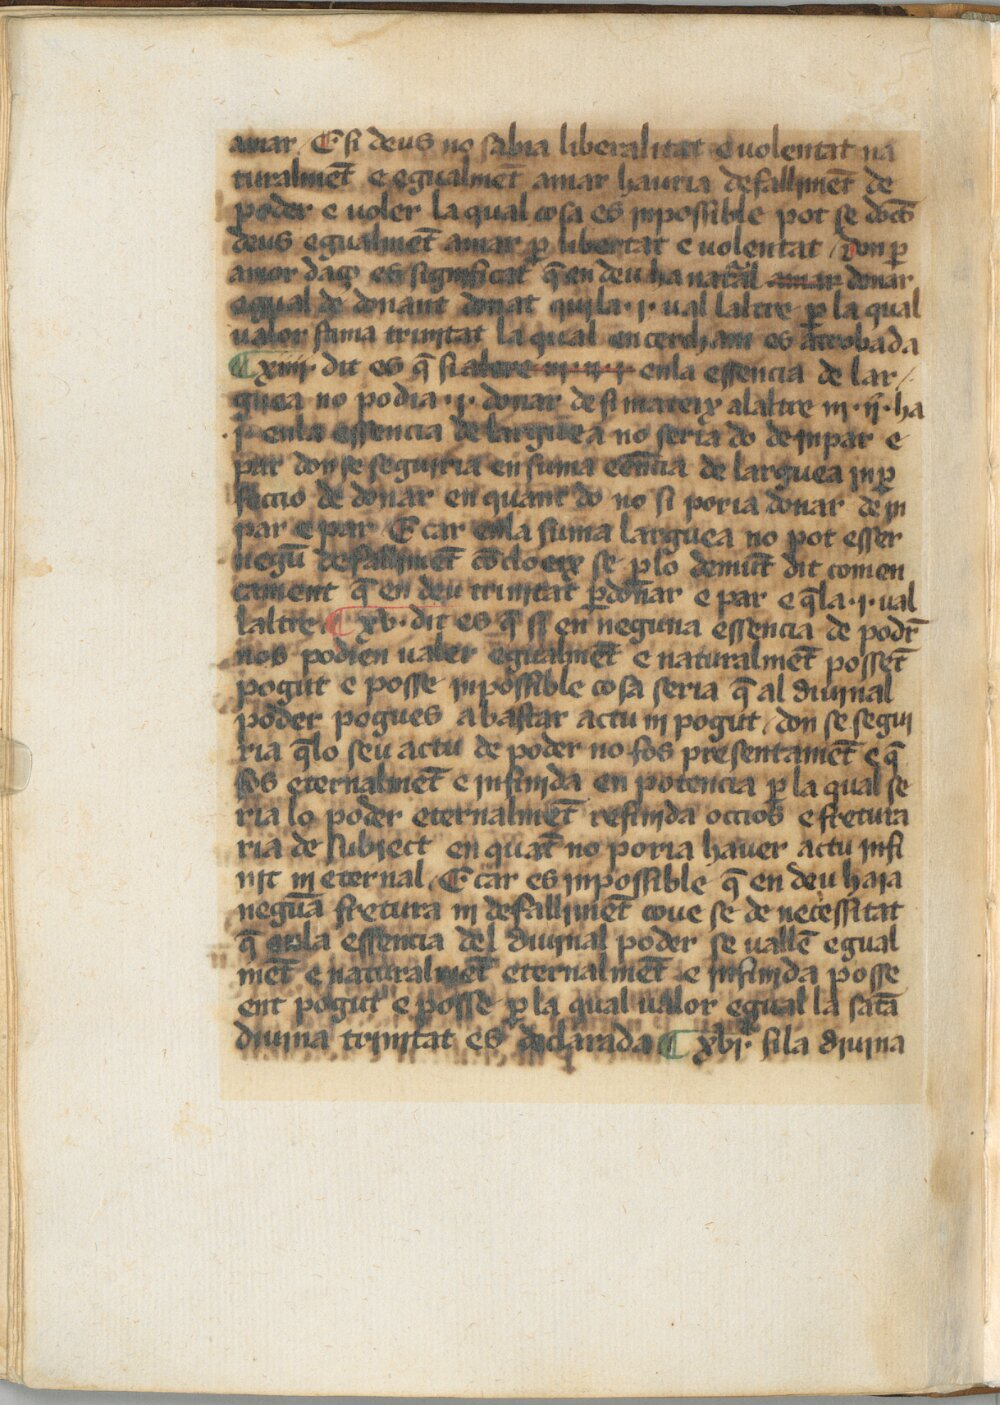 amar. E si deus no sabia liberalitat e uolentat na
turalmẽt e egualmẽt amar hauria defallimẽt de
poder e uoler la qual cosa es inpossible pot se dõcs
deus egualmẽt amar ꝑ libertat e uolentat / don ꝑ
amor daq̃ es significat q̃ en deu ha natᵃal amar donar
egual de donant donat quila .i. ual laltre ꝑ la qual
ualor suma trinitat la qual en cercham es atrobada
¶ xiiii. dit es q̃ si enla essencia de lar/
guea no podia .i. donar de si mateix alaltre ni .ii. ha
.i. enla essencia de larguea no seria do de inpar e
par don se seguiria en suma eẽncia de larguea inꝑ
feccio de donar en quant do no si poria donar de in
par e par. E car enla suma larguea no pot esser
negũ defallimẽt cõcloex se ꝑ lo demũt dit comen
cament q̃ en deu trinitat ꝑdonar e par e q̃la .i. ual
laltre. ¶ xv. dit es q̃ si en neguna essencia de podr̃
nos podien ualer egualmẽt e naturalmẽt possẽt
pogut e posse inpossible cosa seria q̃ al diuinal
poder pogues abastar actu ni pogut / don se segui
ria q̃lo seu actu de poder no fos presentamẽt e q̃
fos eternalmẽt e infinida en potencia ꝑ la qual se
ria lo poder eternalmẽt refinida occios e fretura
ria de subiect en quãt no poria hauer actu infi
nit ni eternal. E car es inpossible q̃ en deu haia
neguã fretura ni defallimẽt coue se de necessitat
q̃ enla essencia del diuinal poder se uallẽ egual
mẽt e naturalmẽt eternalmẽt e infinida posse
ent pogut e posse ꝑ la qual ualor egual la satã
diuina trinitat es declarada ¶ xvi. si la diuina